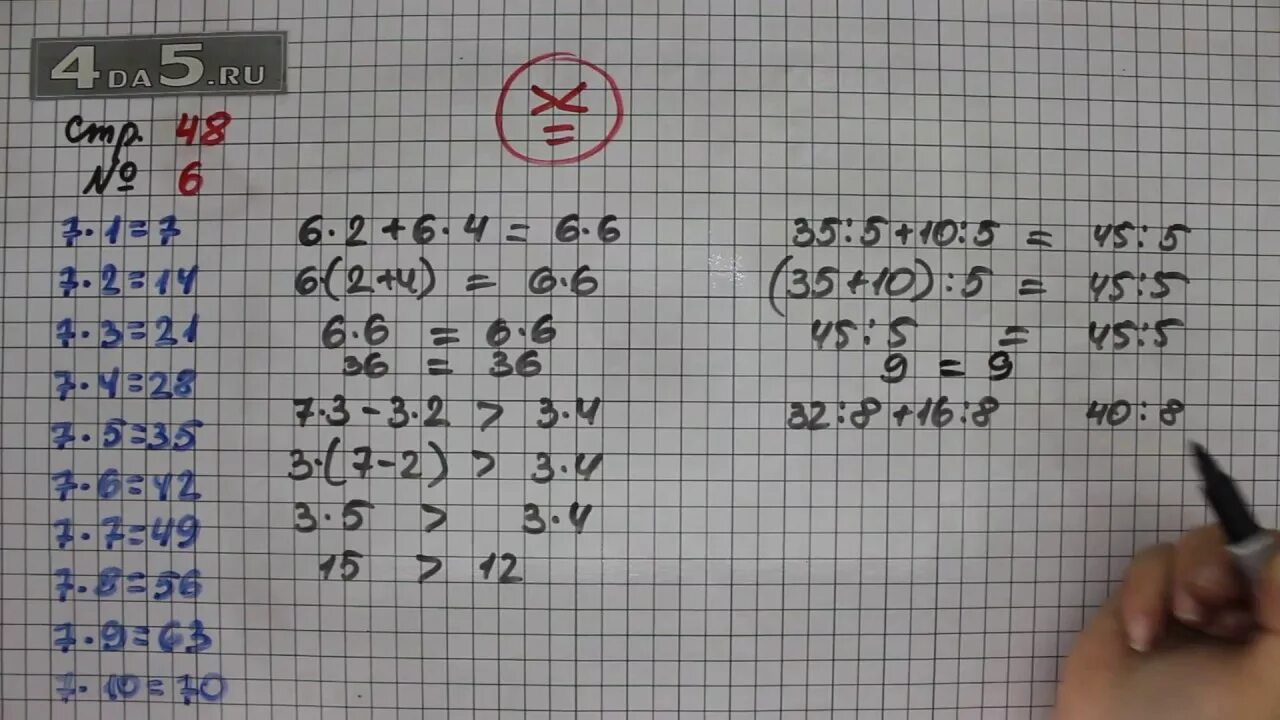 4DA5.RU
Стр. 48
№ 6
> <
=
7·1=7
7·2=14
7·3=21
7·4=28
7·5=35
7·6=42
7·7=49
7·8=56
7·9=63
7·10=70
6·2+6·4 = 6·6
6·(2+4) = 6·6
6·6 = 6·6
36 = 36
7·3-3·2 > 3·4
3·(7-2) > 3·4
3·5 > 3·4
15 > 12
35:5+10:5 = 45:5
(35+10):5 = 45:5
45:5 = 45:5
9 = 9
32:8+16:8 40:8